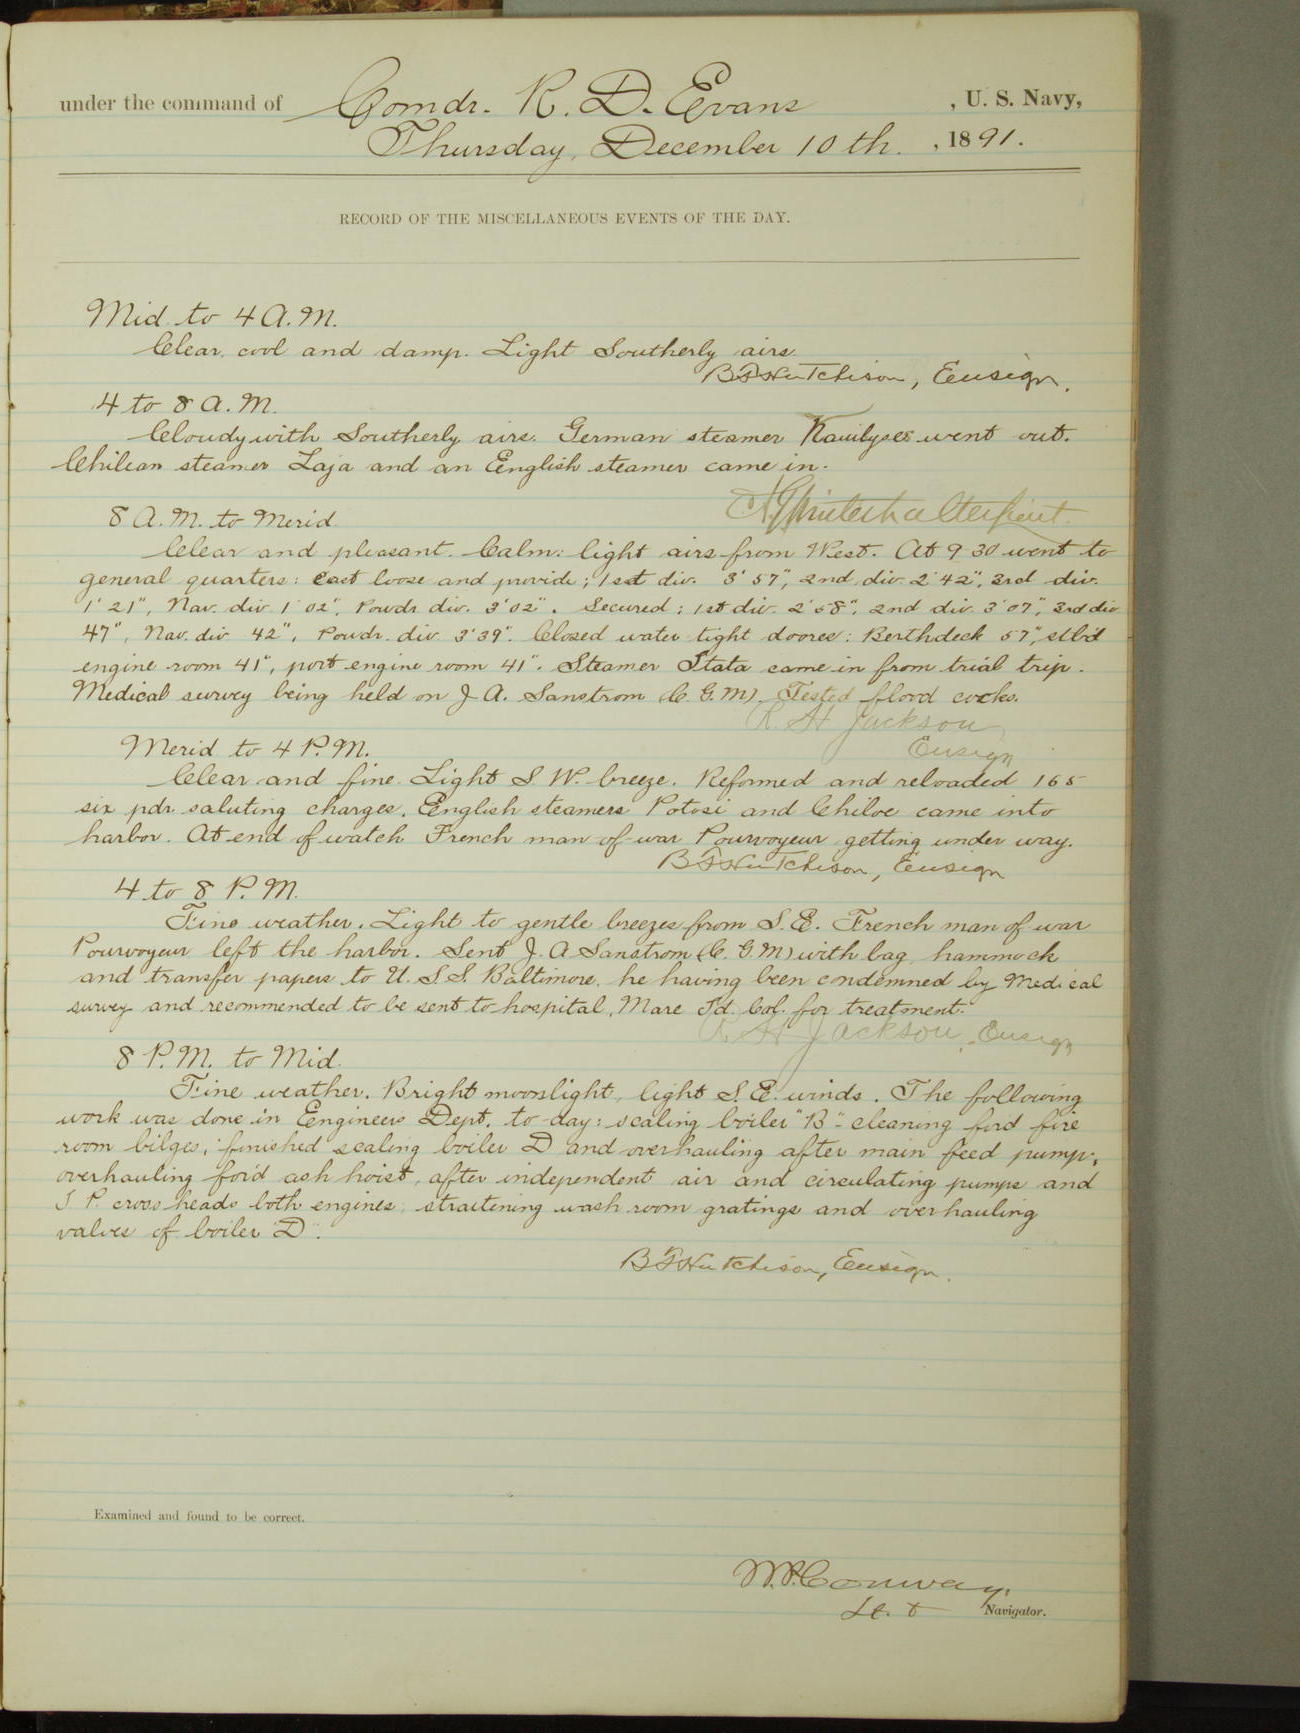 under the command of Comdr. R. D. Evans , U. S. Navy,
Thursday, December 10th. , 1891.
RECORD OF THE MISCELLANEOUS EVENTS OF THE DAY.
Mid. to 4 A.M.
Clear, cool and damp. Light Southerly airs.
B F Hutchison, Ensign.
4 to 8 A.M.
Cloudy with Southerly airs. German steamer went out.
Chilean steamer Laja and an English steamer came in.
Winterhalter Lieut.
8 A.M. to Merid.
Clear and pleasant. Calm: light airs from West. At 9 30 went to
general quarters: cast loose and provide; 1st div. 3' 57", 2nd div. 2' 42", 3rd div.
1' 21", Nav. div 1' 02", Powdr div. 3' 02". Secured; 1st div. 2' 58", 2nd div 3' 07", 3rd div
47", Nav. div 42", Powdr. div 3' 39". Closed water tight doors: Berthdeck 57", stb'd
engine room 41", port engine room 41". Steamer Itata came in from trial trip.
Medical survey being held on J. A. Sanstrom (C. G. M). Tested flood cocks.
R. H. Jackson
Ensign
Merid to 4 P.M.
Clear and fine. Light S. W. breeze. Reformed and reloaded 165
six pdr. saluting charges. English steamers Potosi and Chiloe came into
harbor. At end of watch French man of war Pourvoyeur getting under way.
B F Hutchison, Ensign
4 to 8 P.M.
Fine weather. Light to gentle breezes from S. E. French man of war
Pourvoyeur left the harbor. Sent J. A Sanstrom (C. G. M) with bag, hammock
and transfer papers to U. S. S. Baltimore, he having been condemned by Medical
survey and recommended to be sent to hospital, Mare Id. Cal. for treatment.
R. H. Jackson, Ensign
8 P.M. to Mid.
Fine weather. Bright moonlight, light S. E. winds. The following
work was done in Engineers Dept. to-day: scaling boiler "B" - cleaning for'd fire
room bilges; finished scaling boiler D and overhauling after main feed pump,
overhauling for'd ash hoist, after independent air and circulating pumps and
I P. cross heads both engines, straitening wash room gratings and overhauling
valves of boiler "D".
B F Hutchison, Ensign.
Examined and found to be correct.
W. P. Conway,
Lt. Navigator.